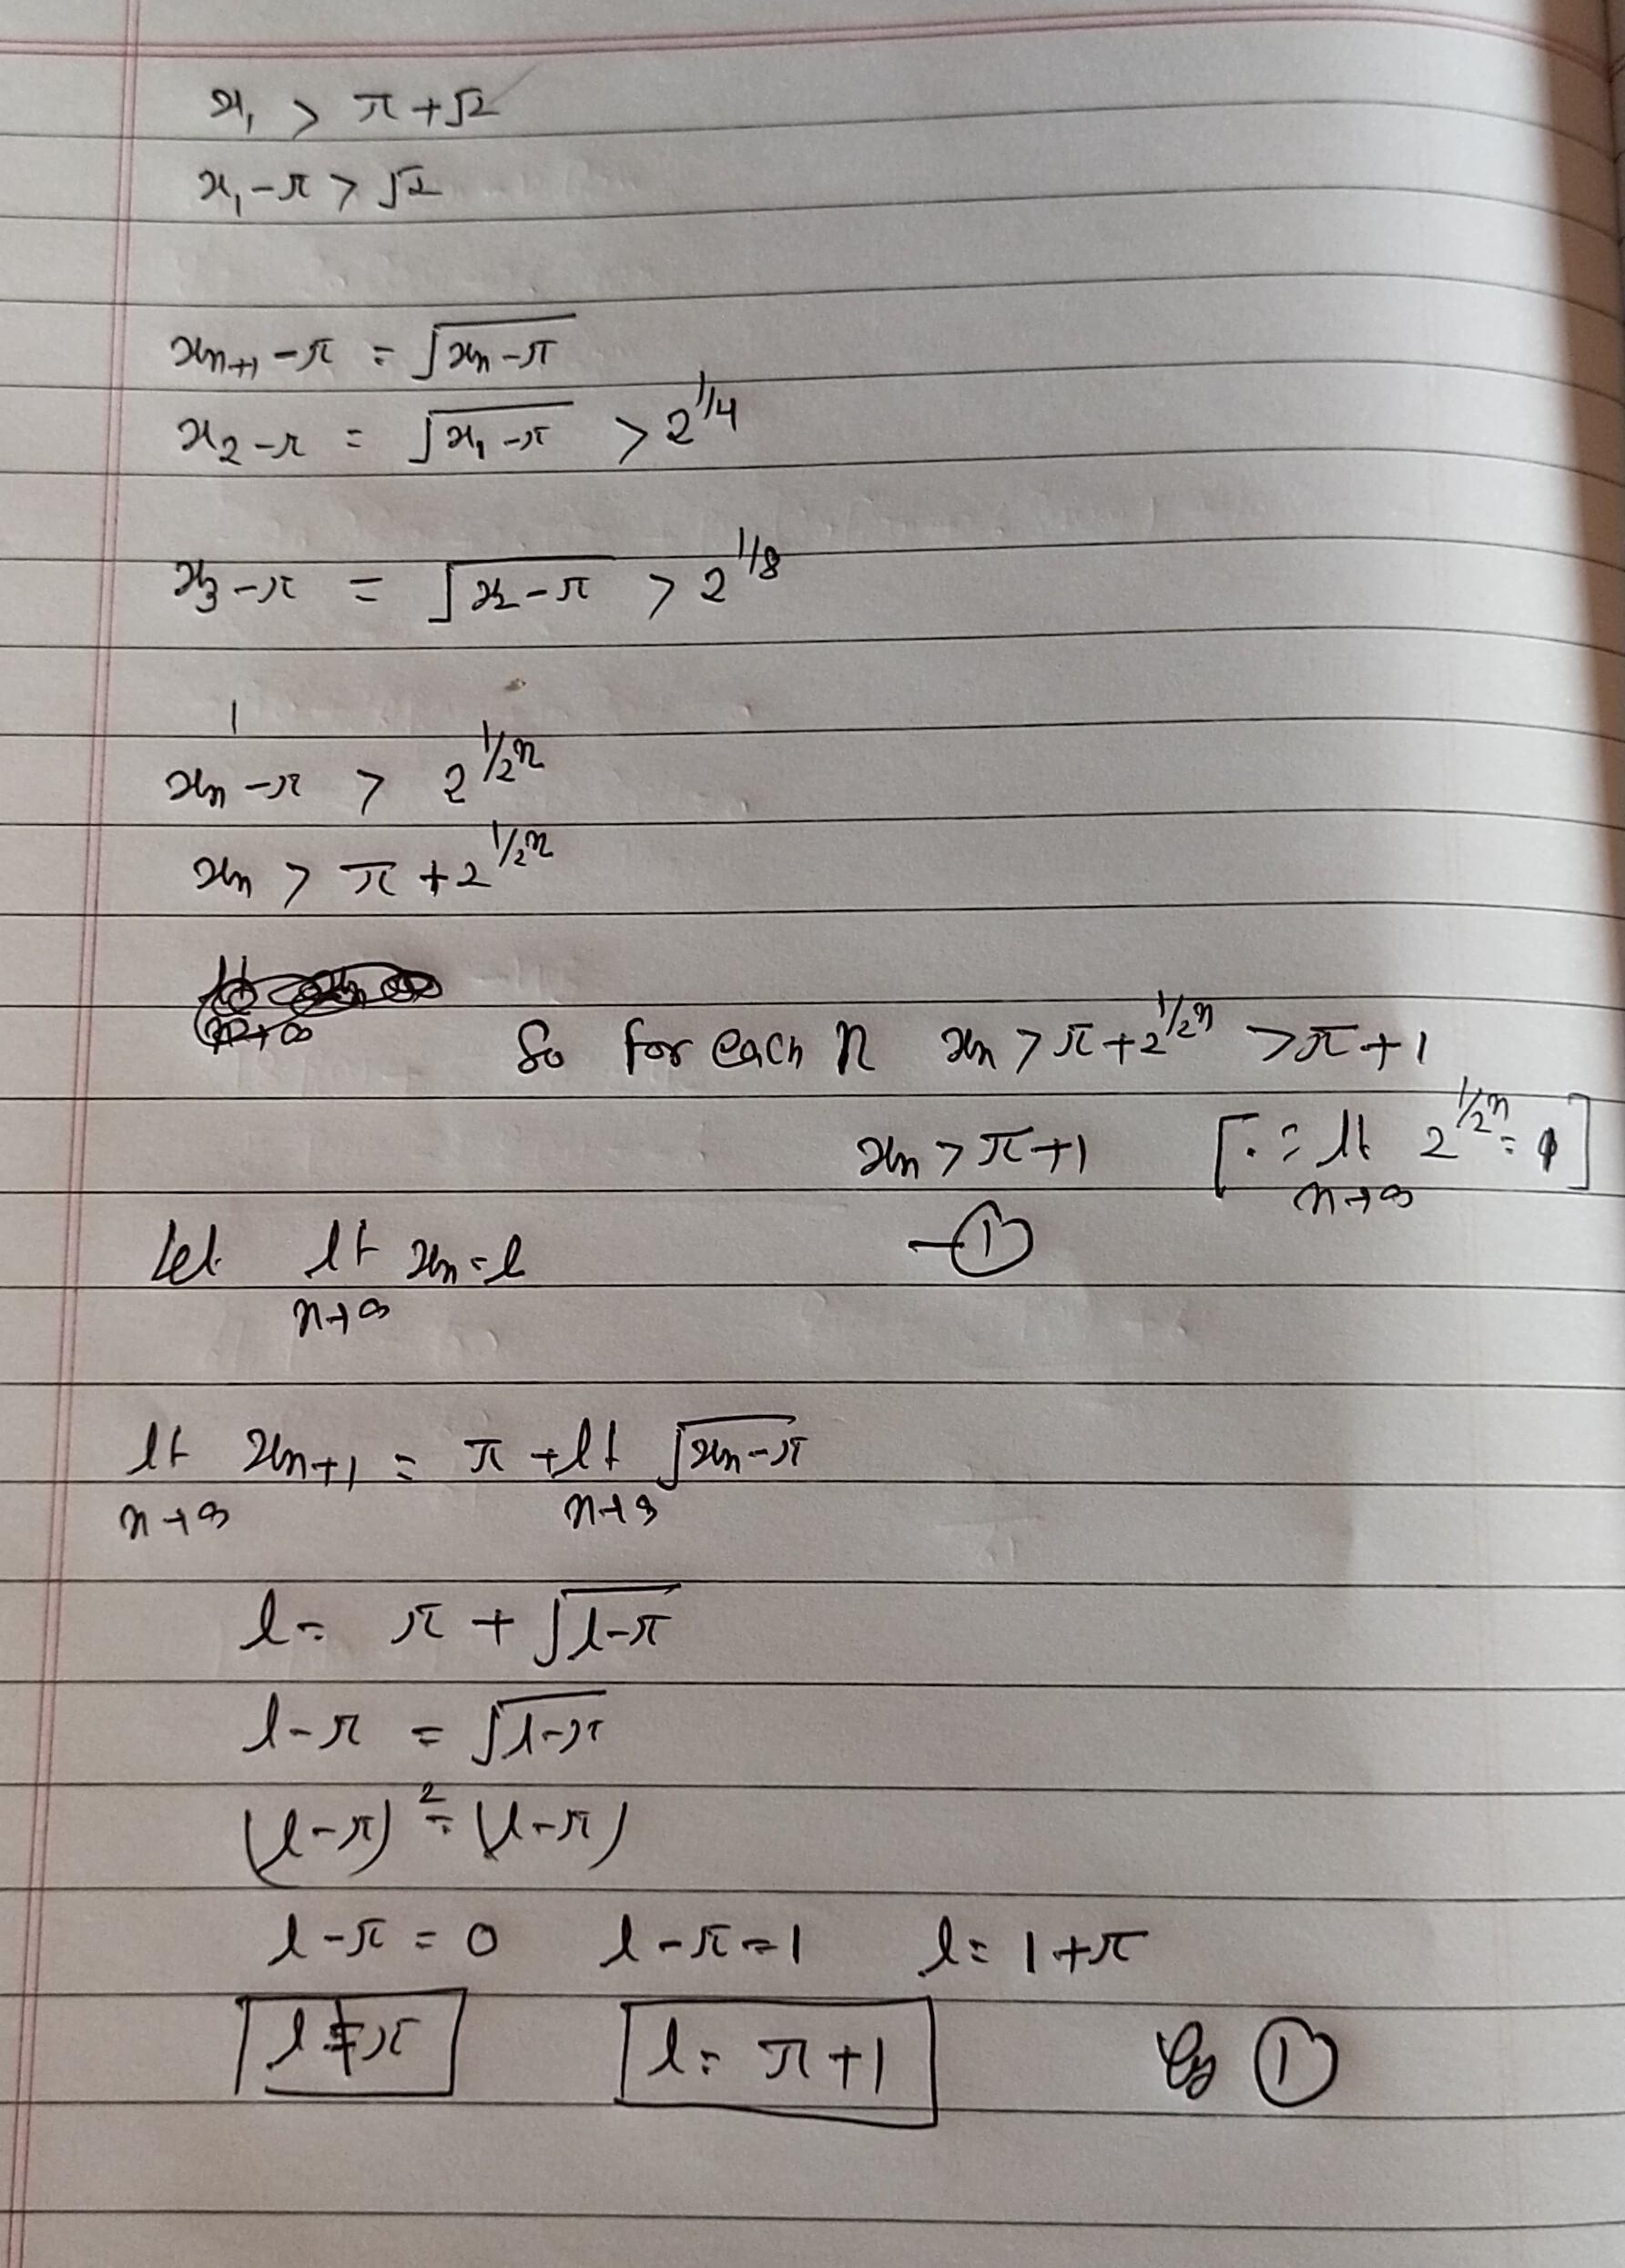 x₁ > π + √2
x₁ - π > √2
xₙ₊₁ - π = √(xₙ - π)
x₂ - π = √(x₁ - π) > 2^(1/4)
x₃ - π = √(x₂ - π) > 2^(1/8)
xₙ - π > 2^(1/2ⁿ)
xₙ > π + 2^(1/2ⁿ)
So for each n xₙ > π + 2^(1/2ⁿ) > π + 1
xₙ > π + 1 [∵ lt n→∞ 2^(1/2ⁿ) = 1]
— ①
Let lt n→∞ xₙ = l
lt n→∞ xₙ₊₁ = π + lt n→∞ √(xₙ - π)
l = π + √(l - π)
l - π = √(l - π)
(l - π)² = (l - π)
l - π = 0 l - π = 1 l = 1 + π
l ≠ π l = π + 1 by ①